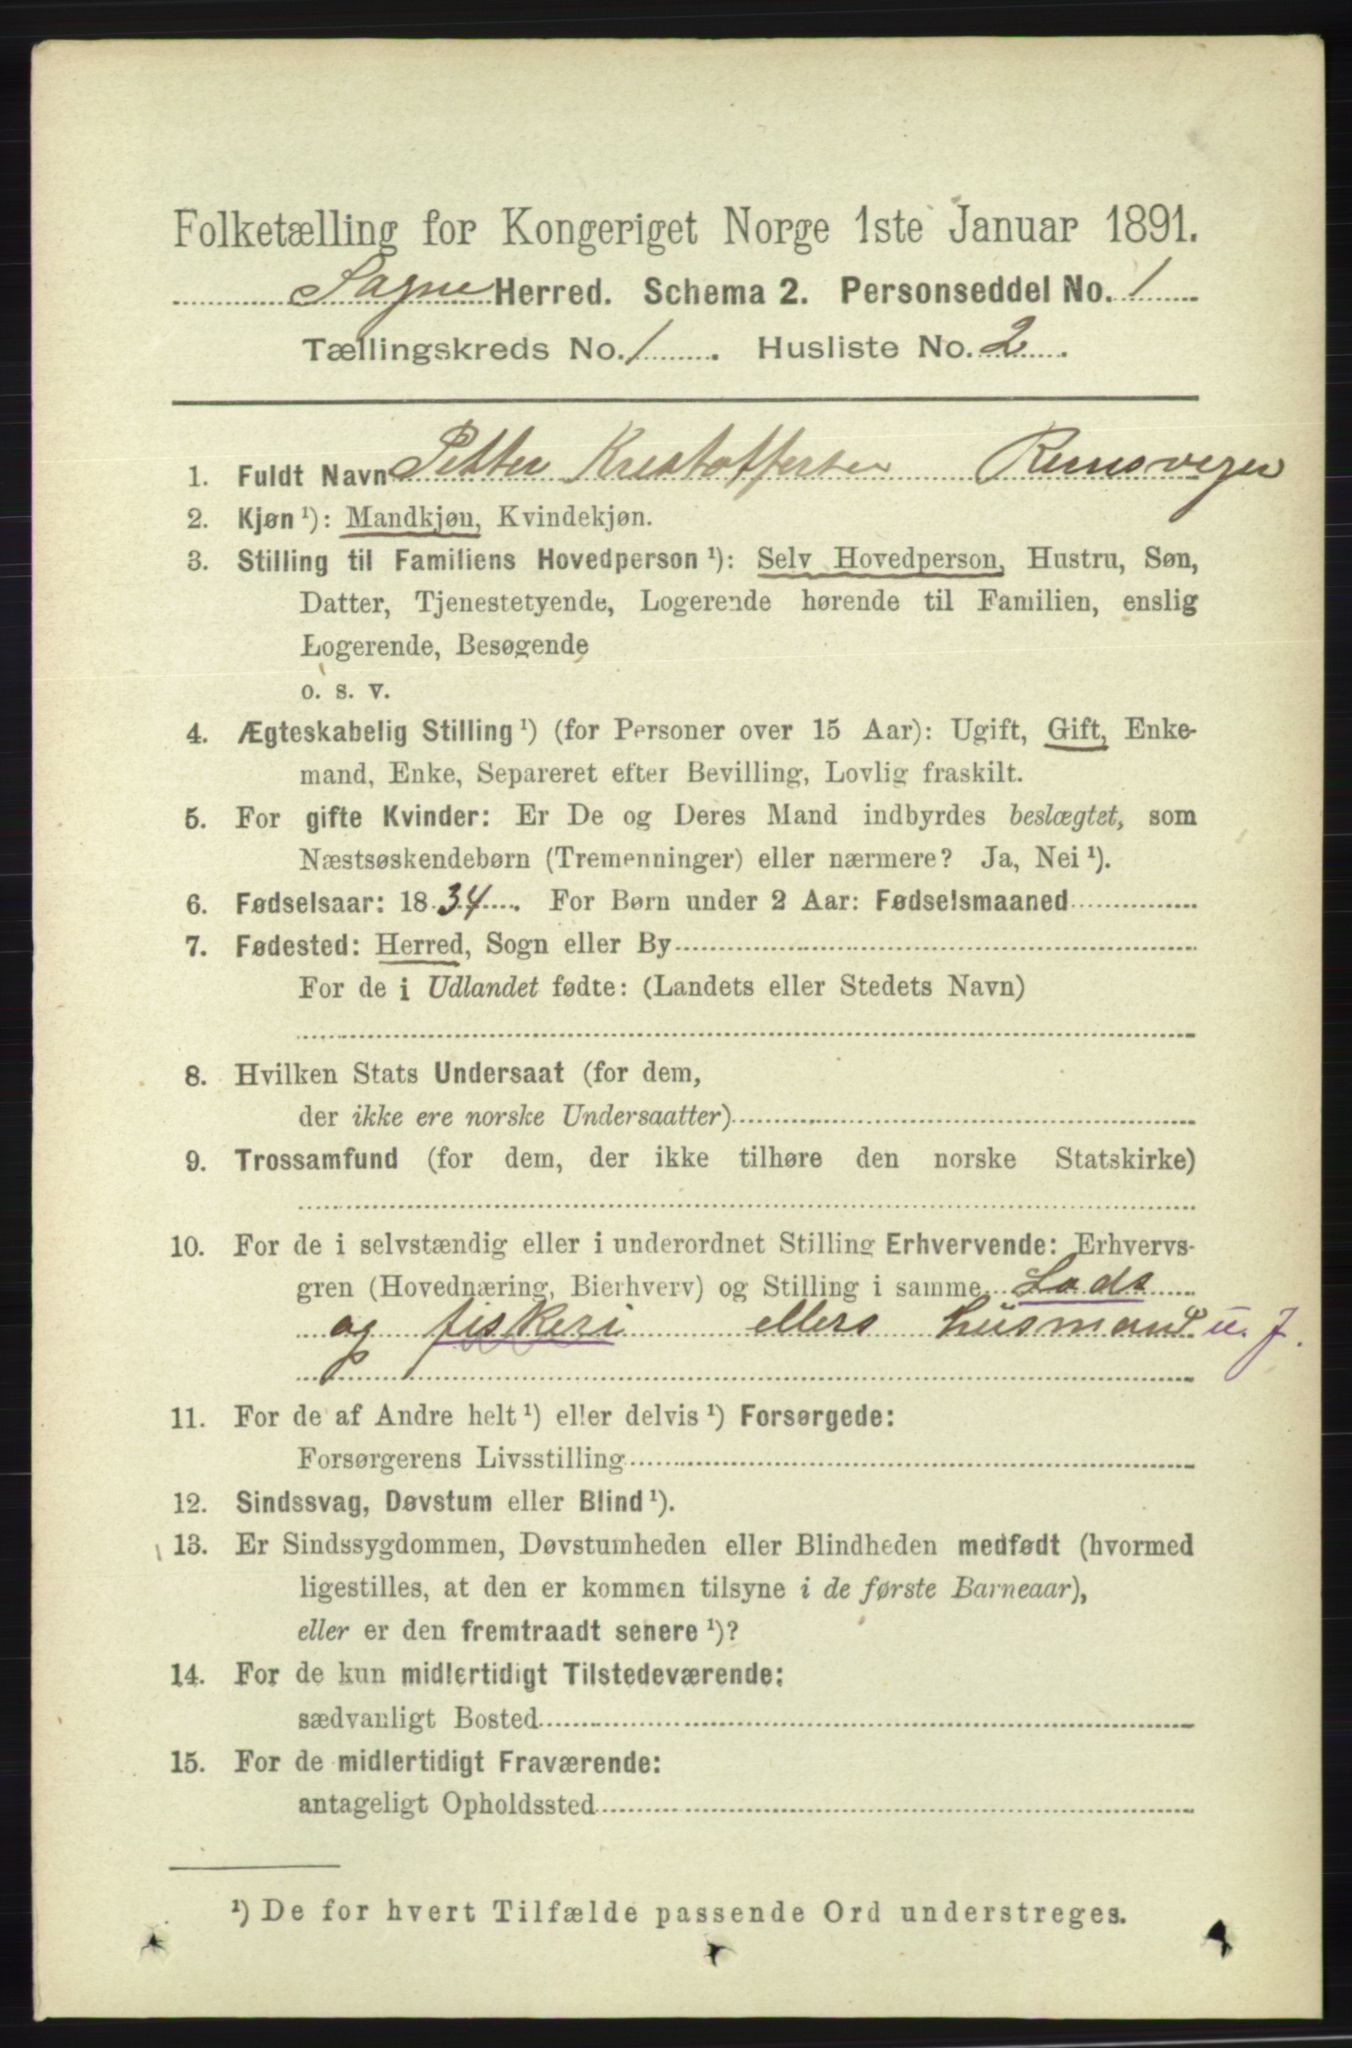 Folketælling for Kongeriget Norge 1ste Januar 1891.
Søgne Herred. Schema 2. Personseddel No. 1
Tællingskreds No. 1. Husliste No. 2.
1. Fuldt Navn Petter Kristoffersen
2. Kjøn ¹): Mandkjøn, Kvindekjøn.
3. Stilling til Familiens Hovedperson ¹): Selv Hovedperson, Hustru, Søn,
Datter, Tjenestetyende, Logerende hørende til Familien, enslig
Logerende, Besøgende
o. s. v.
4. Ægteskabelig Stilling ¹) (for Personer over 15 Aar): Ugift, Gift, Enke-
mand, Enke, Separeret efter Bevilling, Lovlig fraskilt.
5. For gifte Kvinder: Er De og Deres Mand indbyrdes beslægtet, som
Næstsøskendebørn (Tremenninger) eller nærmere? Ja, Nei ¹).
6. Fødselsaar: 1834. For Børn under 2 Aar: Fødselsmaaned
7. Fødested: Herred, Sogn eller By
For de i Udlandet fødte: (Landets eller Stedets Navn)
8. Hvilken Stats Undersaat (for dem,
der ikke ere norske Undersaatter)
9. Trossamfund (for dem, der ikke tilhøre den norske Statskirke)
10. For de i selvstændig eller i underordnet Stilling Erhvervende: Erhvervs-
gren (Hovednæring, Bierhverv) og Stilling i samme Lods
og fiskeri ellers husmand u. J.
11. For de af Andre helt ¹) eller delvis ¹) Forsørgede:
Forsørgerens Livsstilling
12. Sindssvag, Døvstum eller Blind ¹).
13. Er Sindssygdommen, Døvstumheden eller Blindheden medfødt (hvormed
ligestilles, at den er kommen tilsyne i de første Barneaar),
eller er den fremtraadt senere ¹)?
14. For de kun midlertidigt Tilstedeværende:
sædvanligt Bosted
15. For de midlertidigt Fraværende:
antageligt Opholdssted
¹) De for hvert Tilfælde passende Ord understreges.